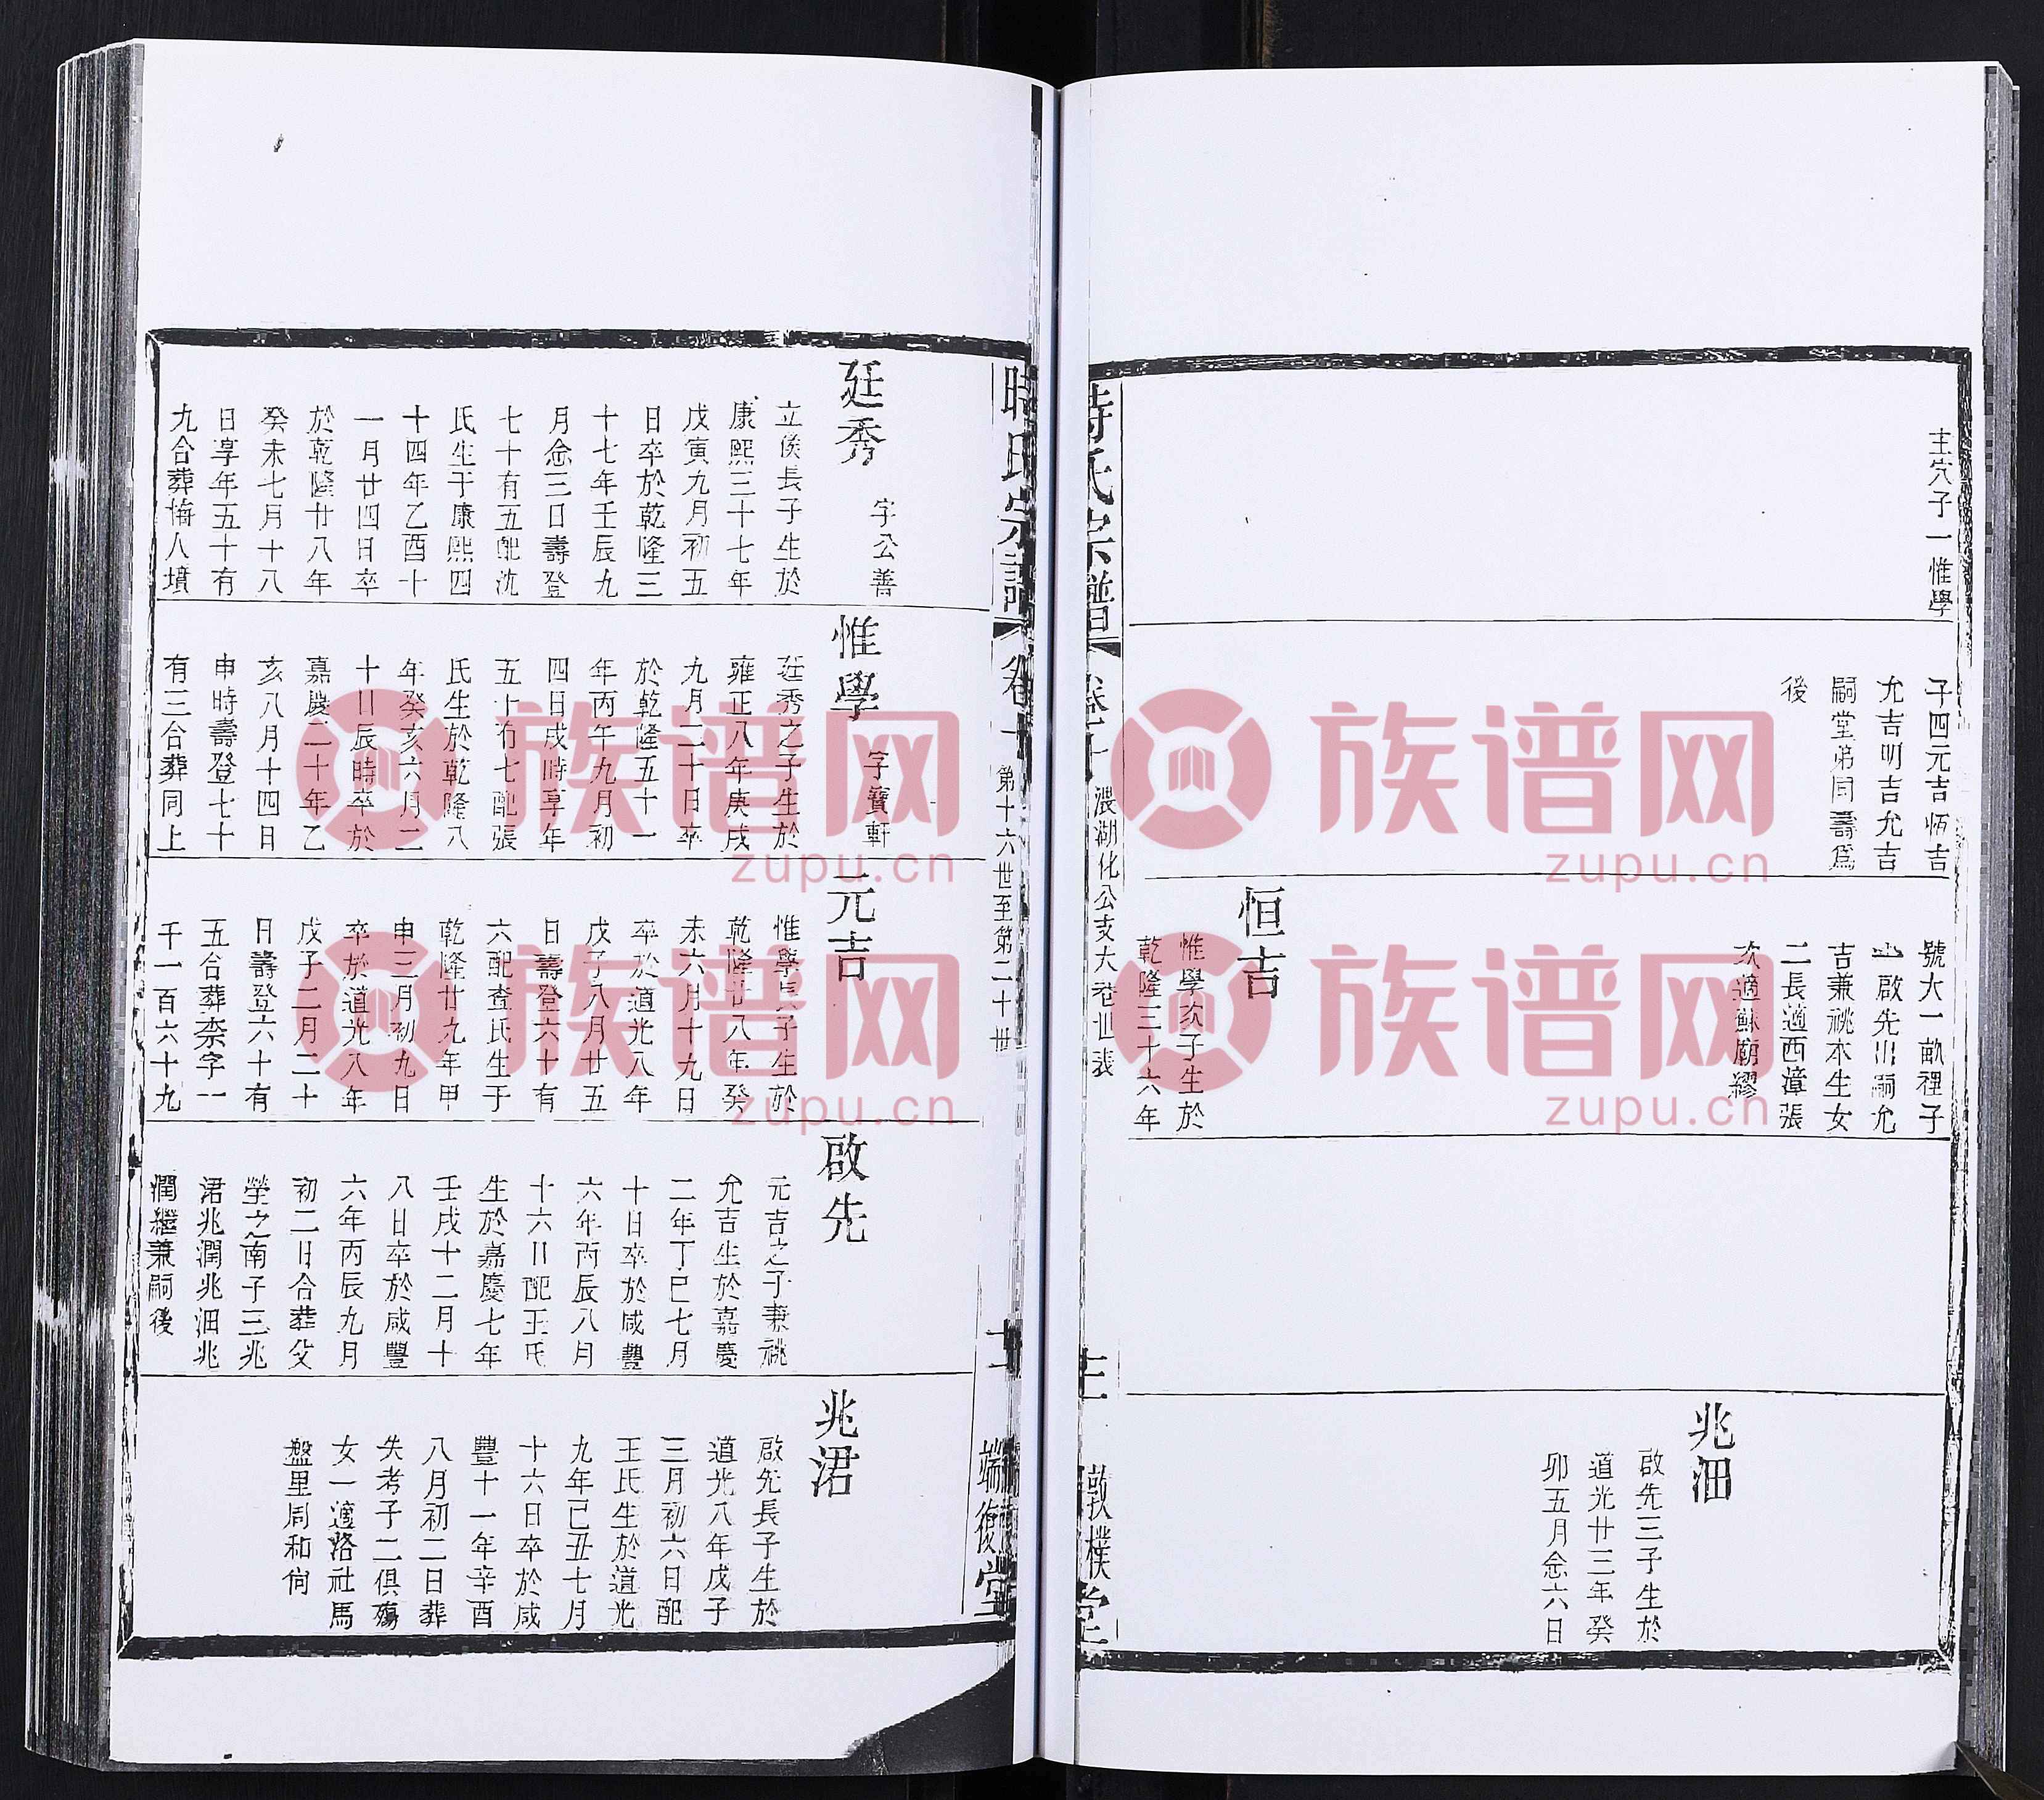 主穴子一惟學
子四元吉恒吉
允吉明吉允吉
嗣堂弟同壽爲
後
號大一畝裡子
一啟先出嗣允
吉兼祧本生女
二長適西漳張
次適蘇廟繆
恒吉
惟學次子生於
乾隆三十六年
兆沺
啟先三子生於
道光廿三年癸
卯五月念六日
時氏宗譜
滆湖化公支大巷世表
敦樸堂
時氏宗譜
卷十
第十六世至第二十世
端復堂
廷秀 字公善
立俟長子生於
康熙三十七年
戊寅九月初五
日卒於乾隆三
十七年壬辰九
月念三日壽登
七十有五配沈
氏生于康熙四
十四年乙酉十
一月廿四日卒
於乾隆廿八年
癸未七月十八
日享年五十有
九合葬悔人墳
惟學 字寶軒
廷秀之子生於
雍正八年庚戌
九月二十日卒
於乾隆五十一
年丙午九月初
四日戌時享年
五十有七配張
氏生於乾隆八
年癸亥六月二
十日辰時卒於
嘉慶二十年乙
亥八月十四日
申時壽登七十
有三合葬同上
元吉
惟學長子生於
乾隆廿八年癸
未六月十九日
卒於道光八年
戊子八月廿五
日壽登六十有
六配查氏生于
乾隆廿九年甲
申三月初九日
卒於道光八年
戊子二月二十
日壽登六十有
五合葬柰字一
千一百六十九
啟先
元吉之子兼祧
允吉生於嘉慶
二年丁巳七月
十日卒於咸豐
六年丙辰八月
十六日配王氏
生於嘉慶七年
壬戌十二月十
八日卒於咸豐
六年丙辰九月
初二日合葬父
塋之南子三兆
涒兆潤兆沺兆
潤繼兼嗣後
兆涒
啟先長子生於
道光八年戊子
三月初六日配
王氏生於道光
九年己丑七月
十六日卒於咸
豐十一年辛酉
八月初二日葬
失考子二俱殤
女一適洛社馬
盤里周和尙
族谱网
zupu.cn
族谱网
zupu.cn
族谱网
zupu.cn
族谱网
zupu.cn